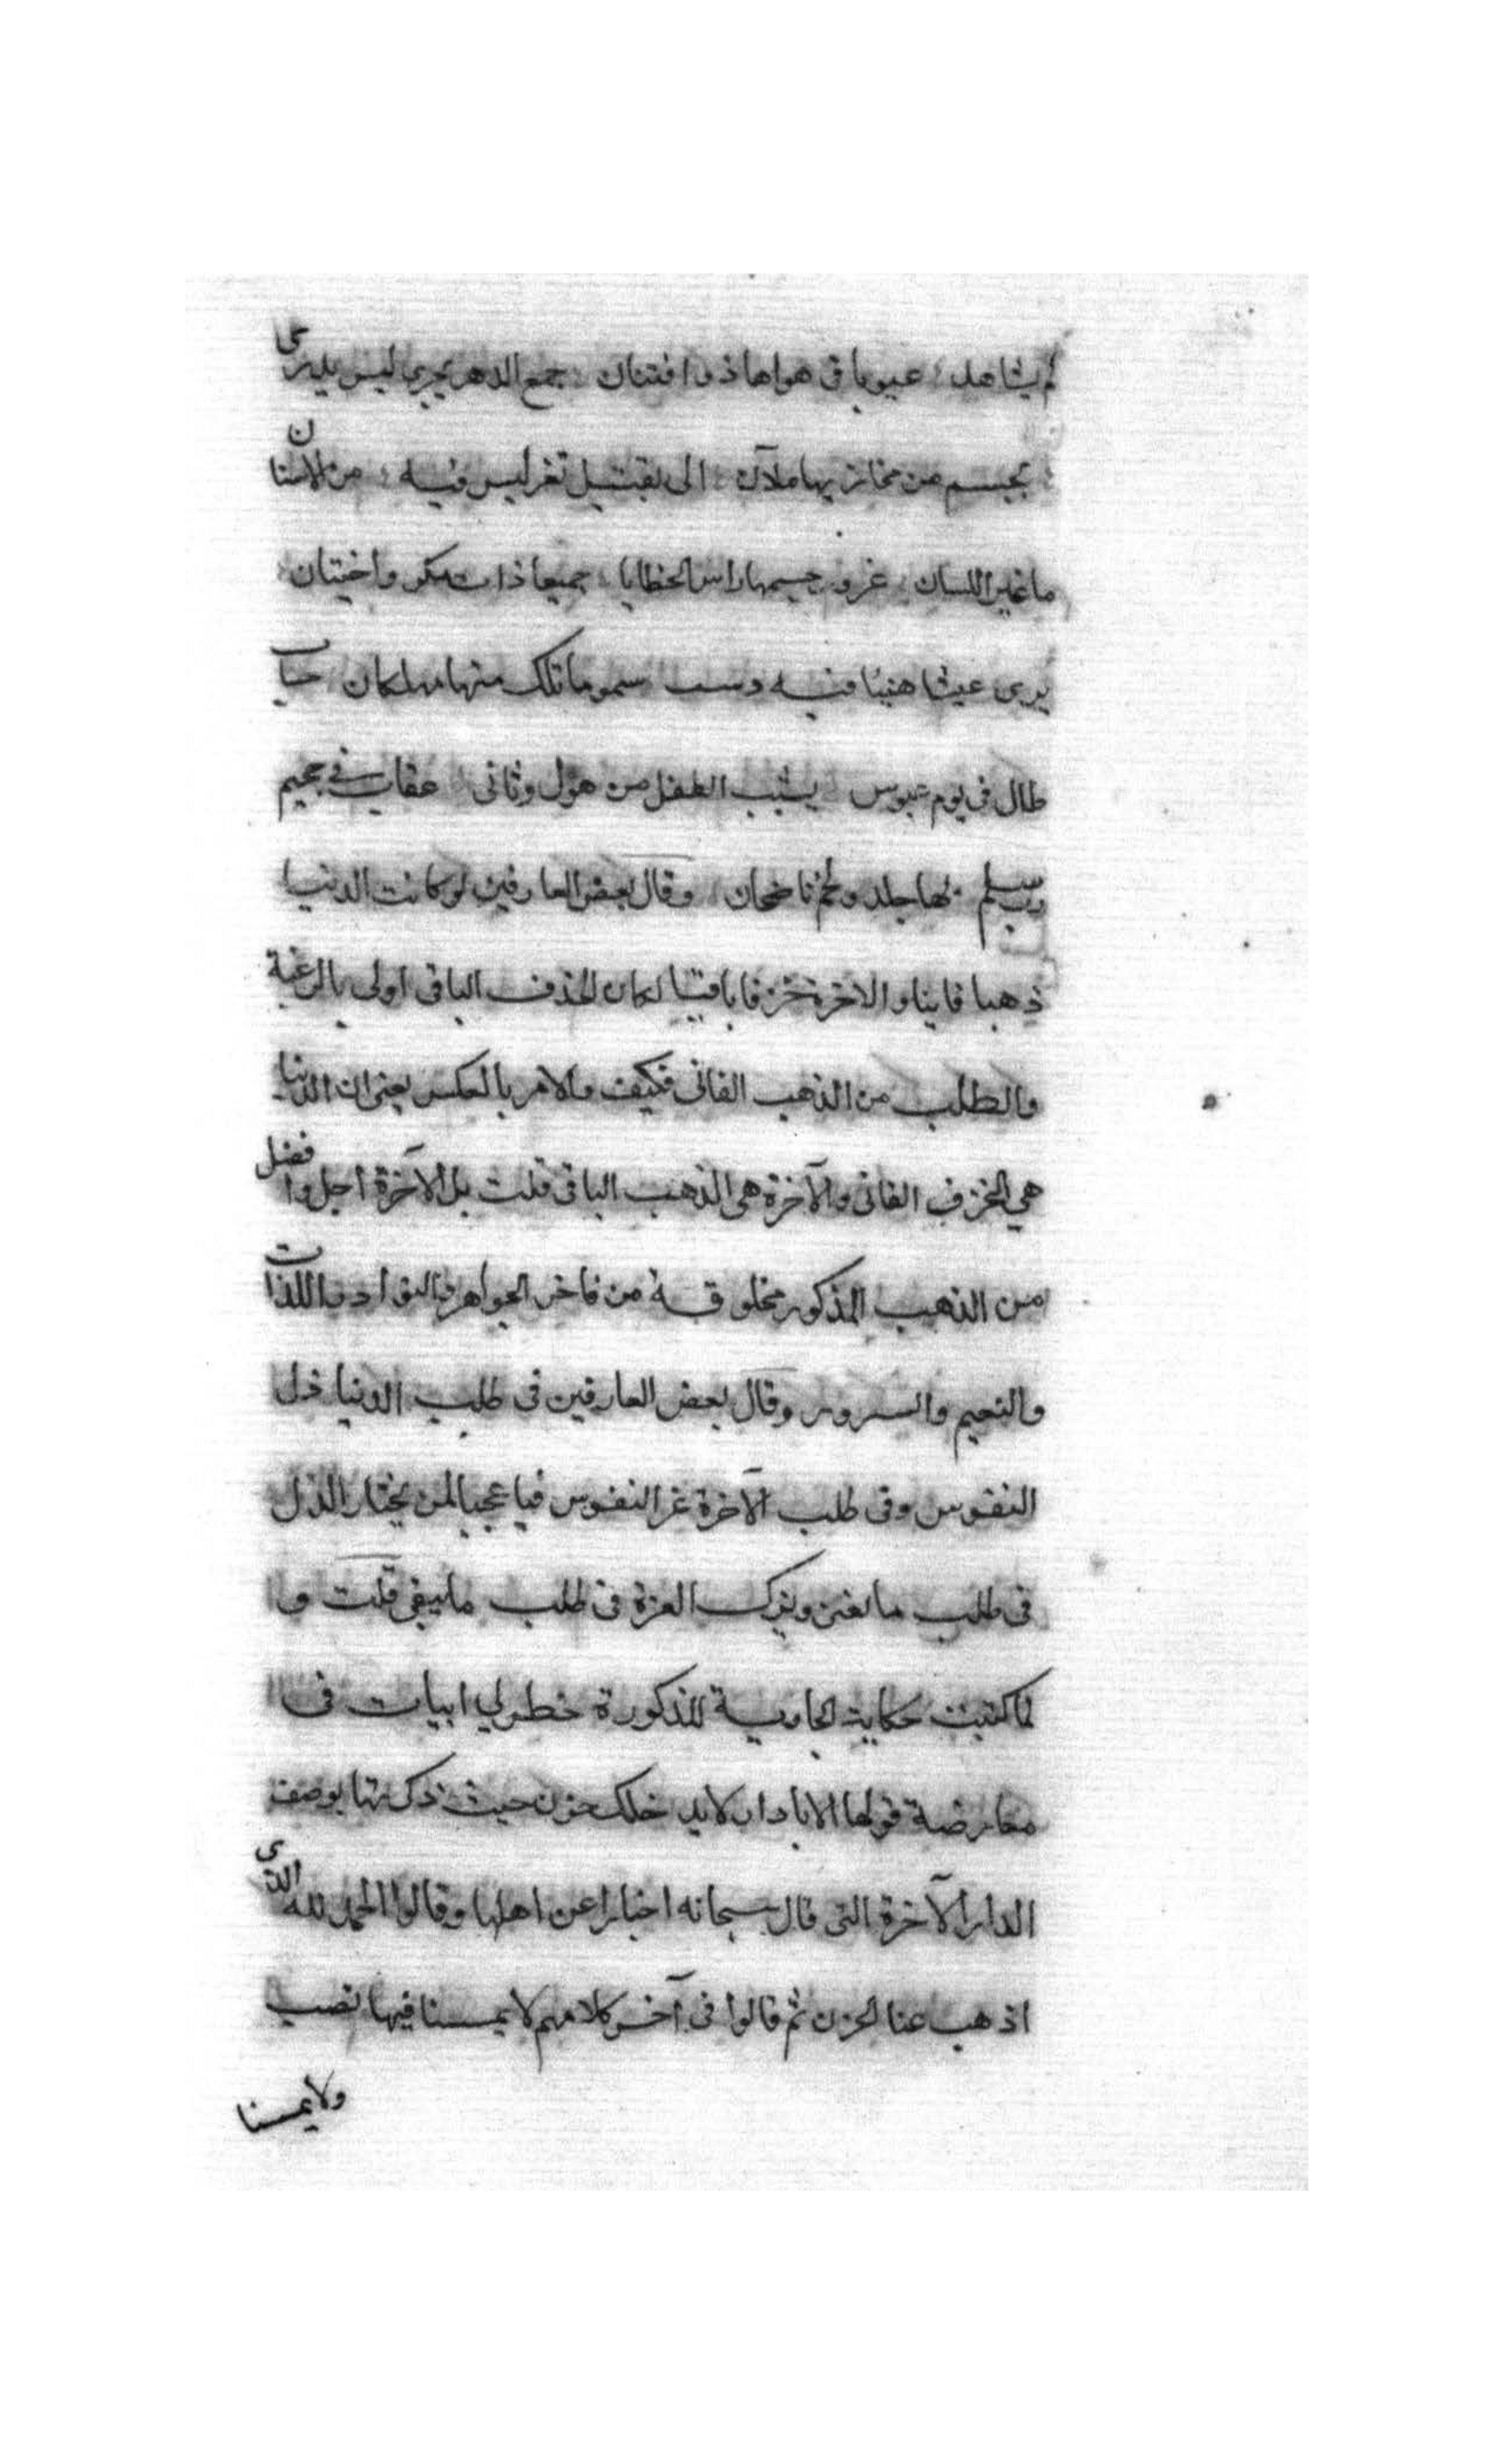 لم يشاهد عيوبا في هواها ذو افتنان جمع الدهر يجري ليس يدري
بجسم من مخازيها ملآن الى تقبيل ثغر ليس فيه من الاسنان
ما غير اللسان غرور جسمها راس الخطايا جميعا ذات مكر واختيان
يرى عيشا هنيئا فيه دست سموما تلك منها مهلكان حساب
طال في يوم عبوس يشيب الطفل من هول وثاني عقاب في جحيم
رب سلم لها جلد ولحم ناضجان وقال بعض العارفين لو كانت الدنيا
ذهبا فانيا والاخرة خزفا باقيا لكان الخذف الباقى اولى بالرغبة
والطلب من الذهب الفانى فكيف والامر بالعكس يعنى ان الدنيا
هي الخزف الفانى والآخرة هى الذهب الباقى قلت بل الآخرة اجل وافضل
من الذهب المذكور مخلوقة من فاخر الجواهر واللذات
والنعيم والسرور وقال بعض العارفين فى طلب الدنيا ذل
النفوس وفى طلب الآخرة عز النفوس فيا عجبا لمن يختار الذل
فى طلب ما يفنى ويترك العزة فى طلب ما يبقى قلت و
لما كتبت حكاية الجارية المذكورة خطر لي ابيات فى
معارضة قولها الا يا دار لا يدخلك حزن حيث ذكرتها بوصف
الدار الآخرة التى قال سبحانه اخبارا عن اهلها وقالوا الحمد لله الذى
اذهب عنا الحزن ثم قالوا فى آخر كلامهم لا يمسنا فيها نصب
ولا يمسنا